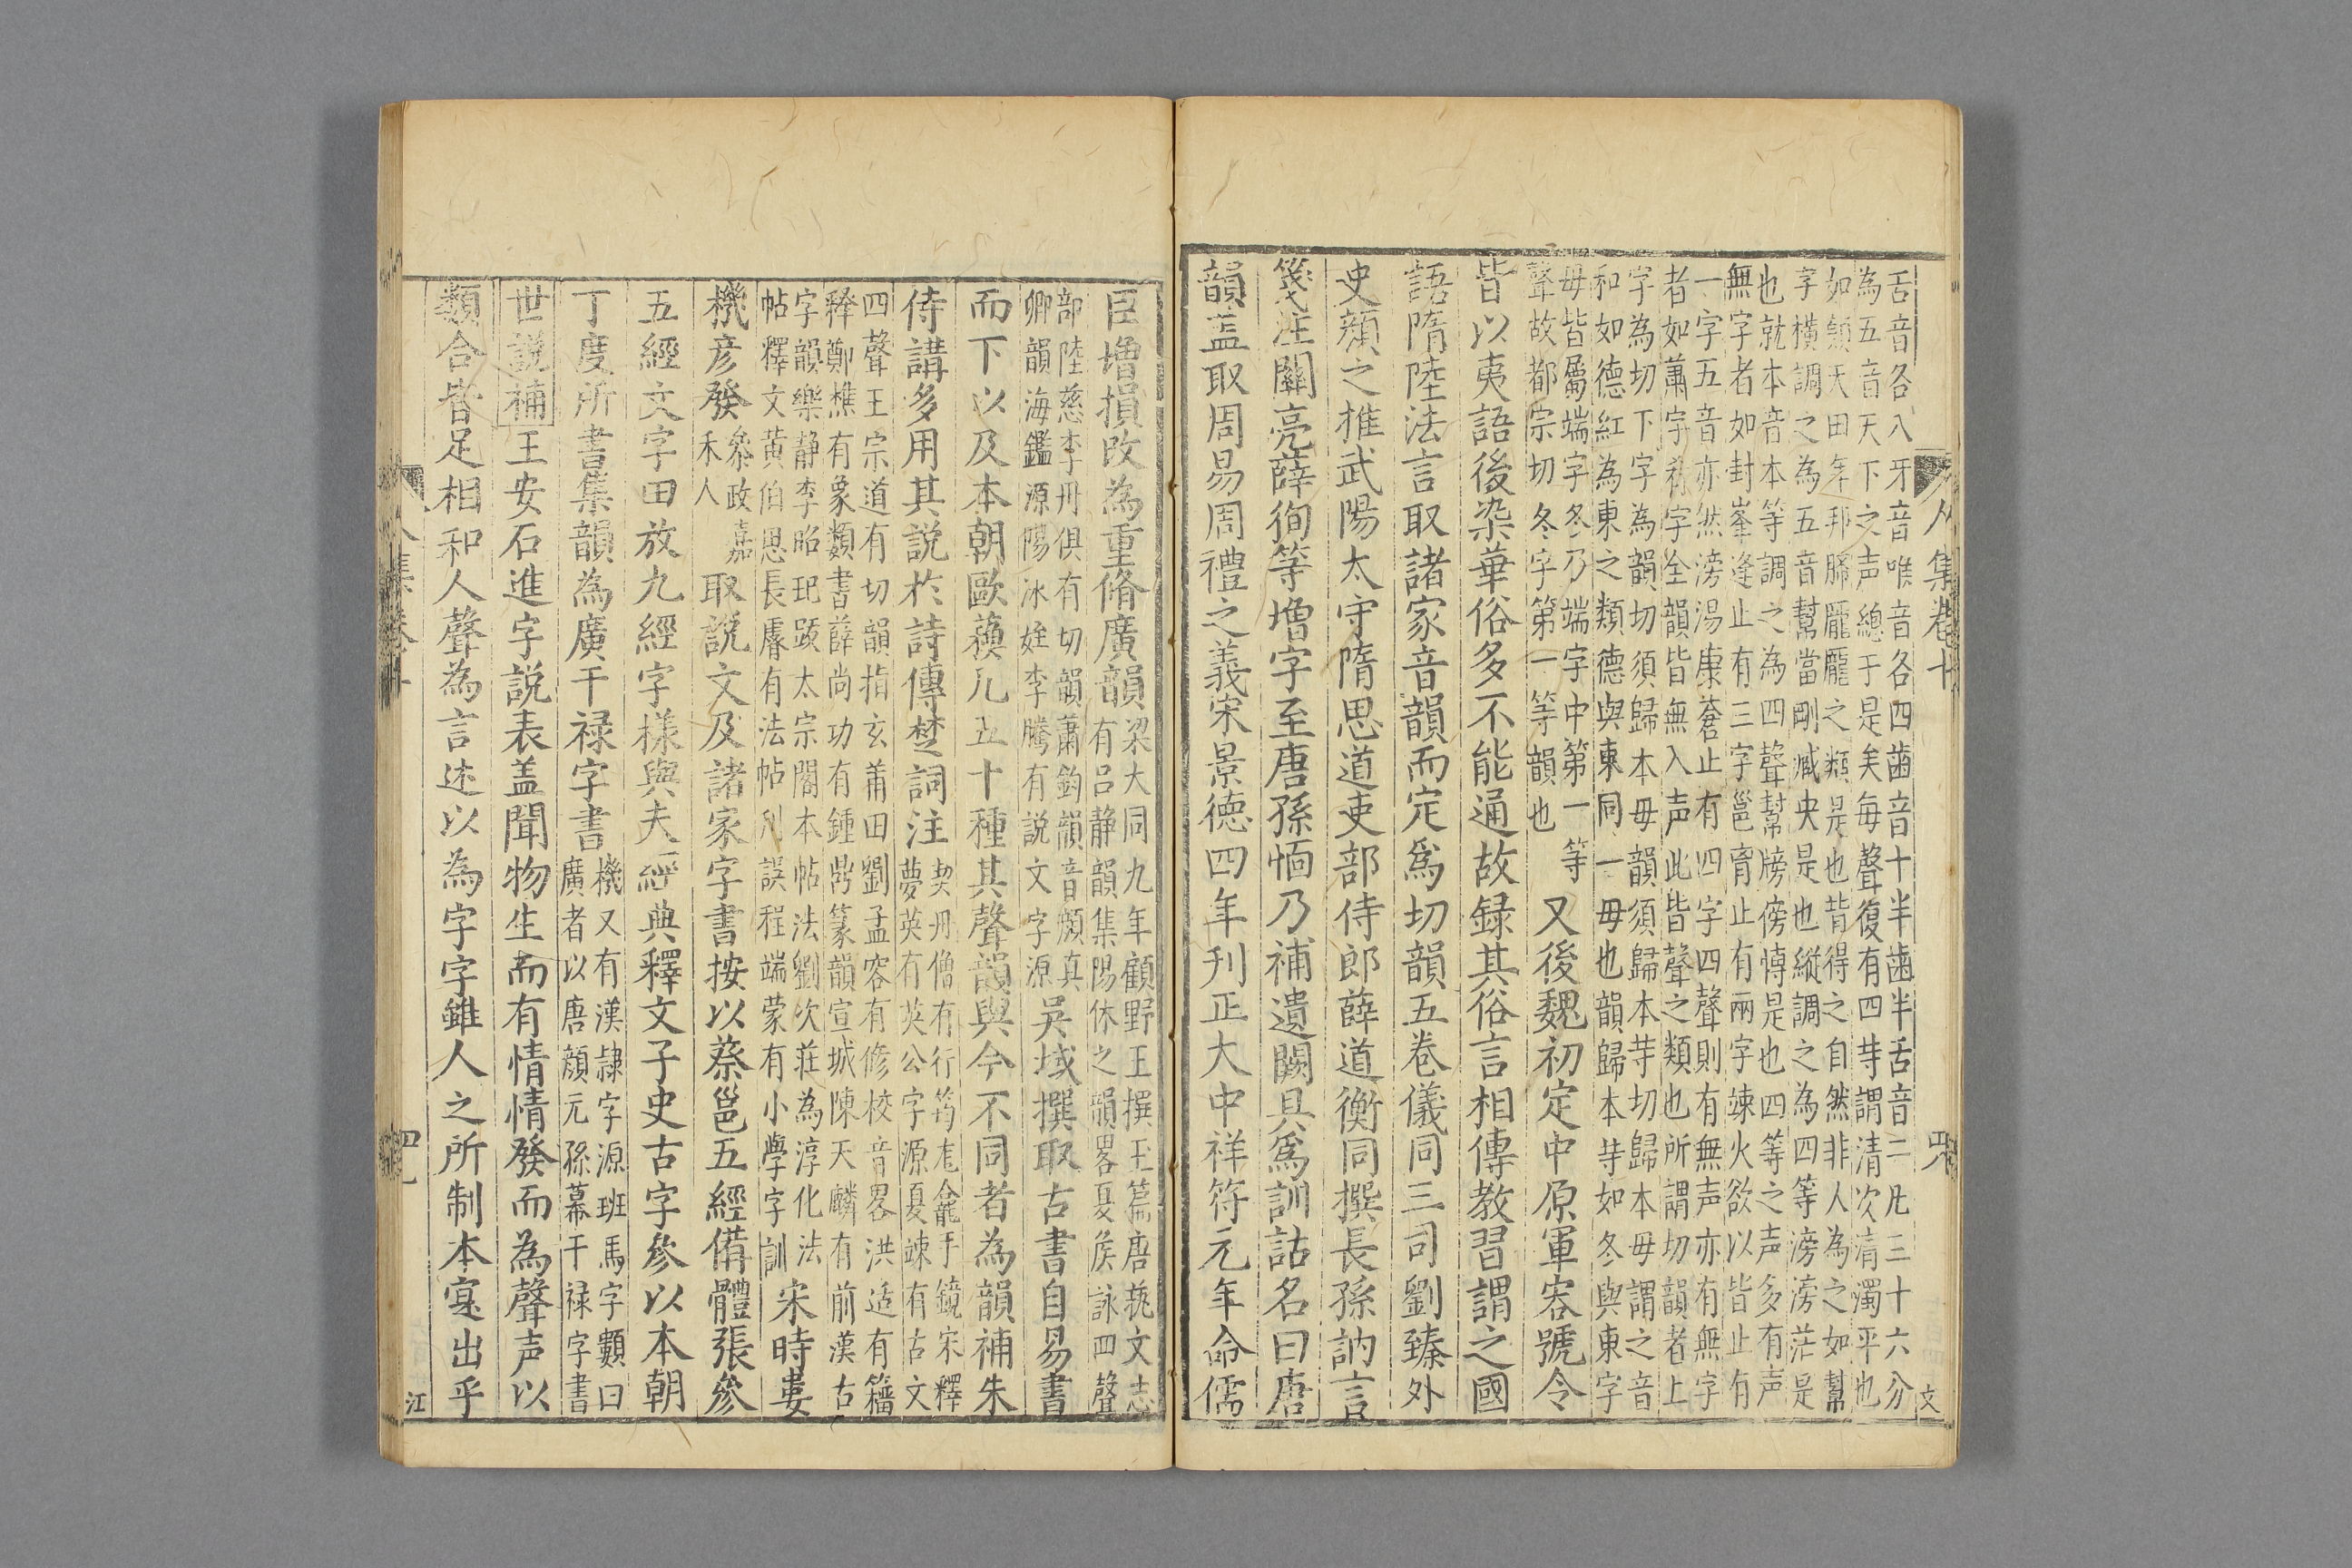 舌音各八牙音唯音各四齒音十半齒半舌音二凡三十六分
為五音天下之声總于是矣每聲復有四䓁謂清次清濁平也
如顛天田年邦䏶龎厖之類是也皆得之自然非人為之如幫
字橫調之為五音幫當剛臧央是也縱調之為四等滂滂茫是
也就本音本等調之為四聲幫牓傍博是也四等之声多有声
無字者如封峯逢止有三字邕育止有兩字竦火欲以皆止有
一字五音亦然滂湯康蒼止有四字四聲則有無声亦有無字
者如蕭字肴字全韻皆無入声此皆聲之類也所謂切韻者上
字為切下字為韻切須歸本母韻須歸本䓁切歸本母謂之音
和如德紅為東之類德與東同一母也韻歸本䓁如冬與東字
母皆屬端字冬乃端字中第一等
聲故都宗切冬字第一等韻也
又後魏初定中原軍容號令
皆以夷語後染華俗多不能通故録其俗言相傳教習謂之國
語隋陸法言取諸家音韻而定爲切韻五巻儀同三司劉臻外
史顔之推武陽太守隋思道吏部侍郎薛道衡同撰長孫訥言
箋注關亮薛徇等增字至唐孫愐乃補遺闕具爲訓詁名曰唐
韻盖取周易周禮之義宋景德四年刊正大中祥符元年命儒
集巻十
文
臣增損改為重脩廣韻
梁大同九年顧野王撰玉篇唐蓺文志
有吕静韻集陽休之韻畧夏侯詠四聲
部陸慈李舟俱有切韻蕭鈞韻音顔真
卿韻海鑑源陽冰姪李騰有説文字源
吳棫撰取古書自易書
而下以及本朝歐蘓凢五十種其聲韻與今不同者為韻補朱
侍講多用其説於詩傳楚詞注
契丹僧有行筠龙龕手鏡宋釋
夢英有英公字源夏竦有古文
四聲王宗道有切韻指玄莆田劉孟容有修校音畧洪适有籀
釋鄭樵有象類書薛尚功有鍾鼎篆韻宣城陳天麟有前漢古
字韻樂静李昭玘跋太宗閣本帖法劉次莊為淳化法
帖釋文黄伯思長睿有法帖刋誤程端蒙有小學字訓
宋時婁
機彦發
叅政嘉
禾人
取説文及諸家字書按以蔡邕五經備體張參
五經文字田放九經字樣與夫經典釋文子史古字參以本朝
丁度所書集韻為廣干禄字書
機又有漢隷字源班馬字類曰
廣者以唐顔元孫幕干禄字書
世説補王安石進字説表盖聞物生而有情情發而為聲声以
類合皆足相和人聲為言述以為字字雖人之所制本寔出乎
集巻十
江